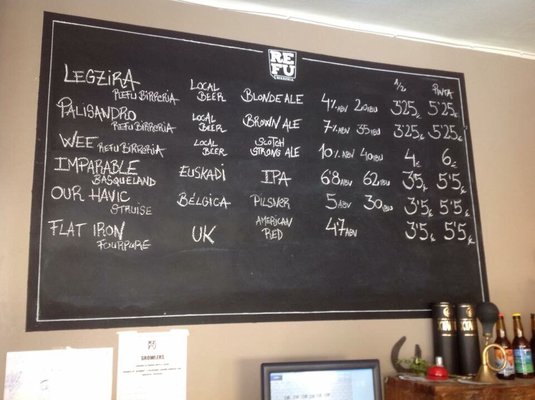 RE
FU
BIRRERIA
1/2 PINTA
LEGZIRA
REFU BIRRERIA LOCAL BEER BLONDE ALE 4% ABV 20 IBU 3'25€ 5'25€
PALISANDRO
REFU BIRRERIA LOCAL BEER BROWN ALE 7% ABV 35 IBU 3'25€ 5'25€
WEE REFU BIRRERIA LOCAL BEER SCOTCH STRONG ALE 10% ABV 40 IBU 4€ 6€
IMPARABLE
BASQUELAND EUSKADI IPA 6'8 ABV 62 IBU 3'5€ 5'5€
OUR HAVIC
STRUISE BÉLGICA PILSNER 5 ABV 30 IBU 3'5€ 5'5€
FLAT IRON
FOURPURE UK AMERICAN RED 4'7 ABV 3'5€ 5'5€
GROWLERS